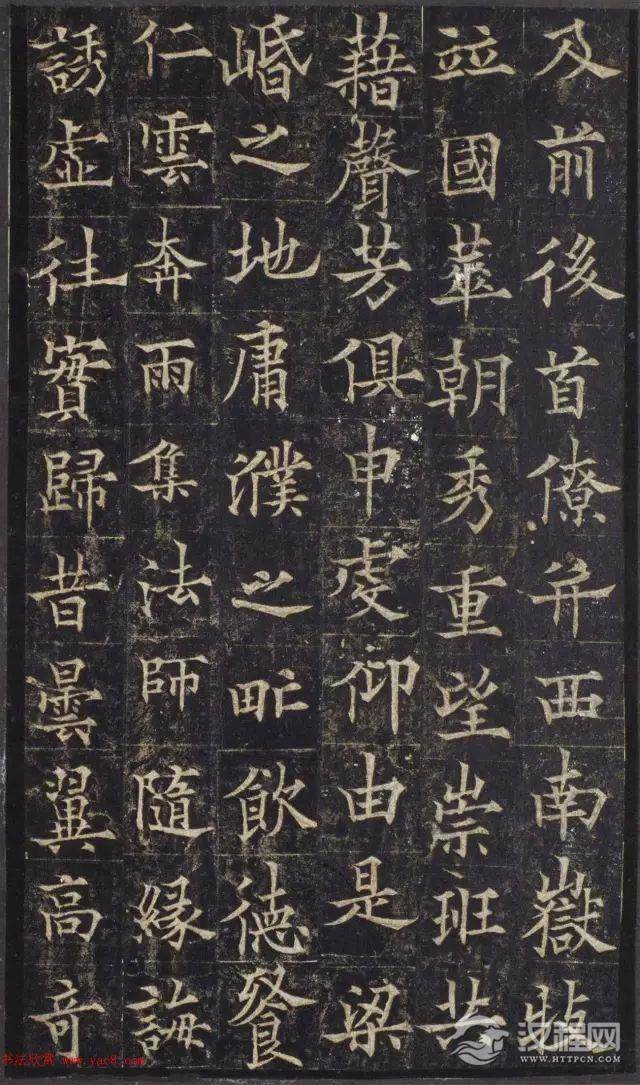 及前後首僚并西南嶽
竝國華朝秀重望崇班
藉聲芳俱申虔仰由是梁
崏之地庸濮之甿飲德餐
仁雲奔雨集法師隨緣誨
誘虛往實歸昔曇翼高奇
书法欣赏 www.yac8.com
汉程网
WWW.HTTPCN.COM